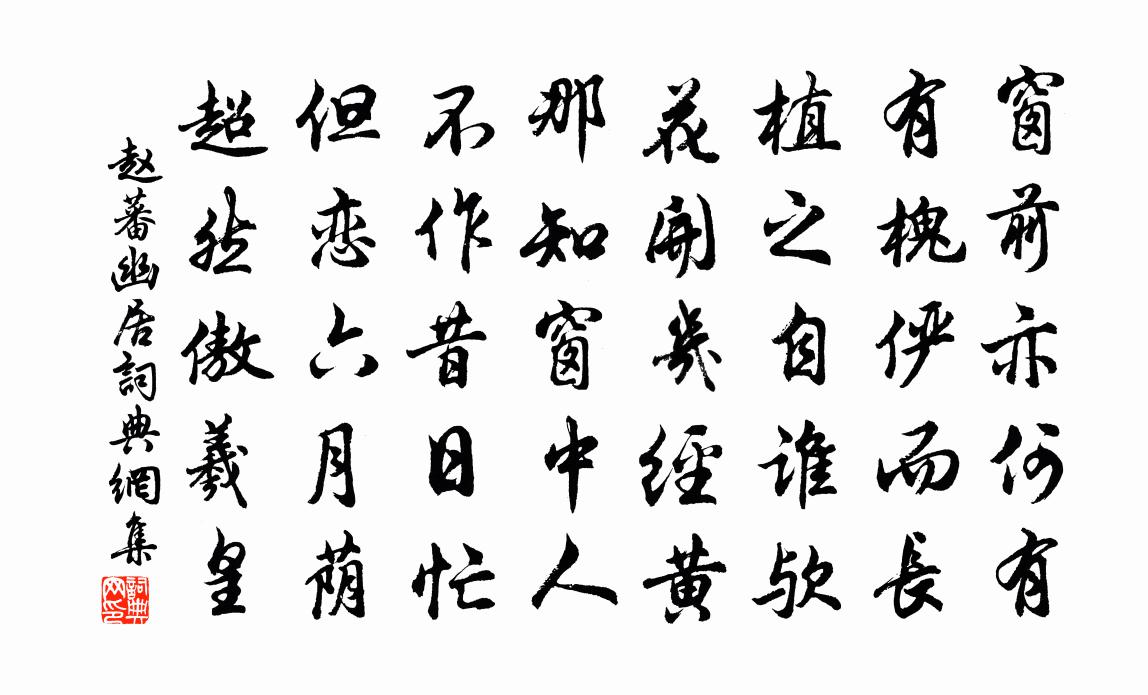 窗前亦何有
有槐俨而長
植之自谁欤
花開幾經黄
那知窗中人
不作昔日忙
但恋六月荫
超然傲羲皇
赵蕃幽居詞典網集
詞典网印